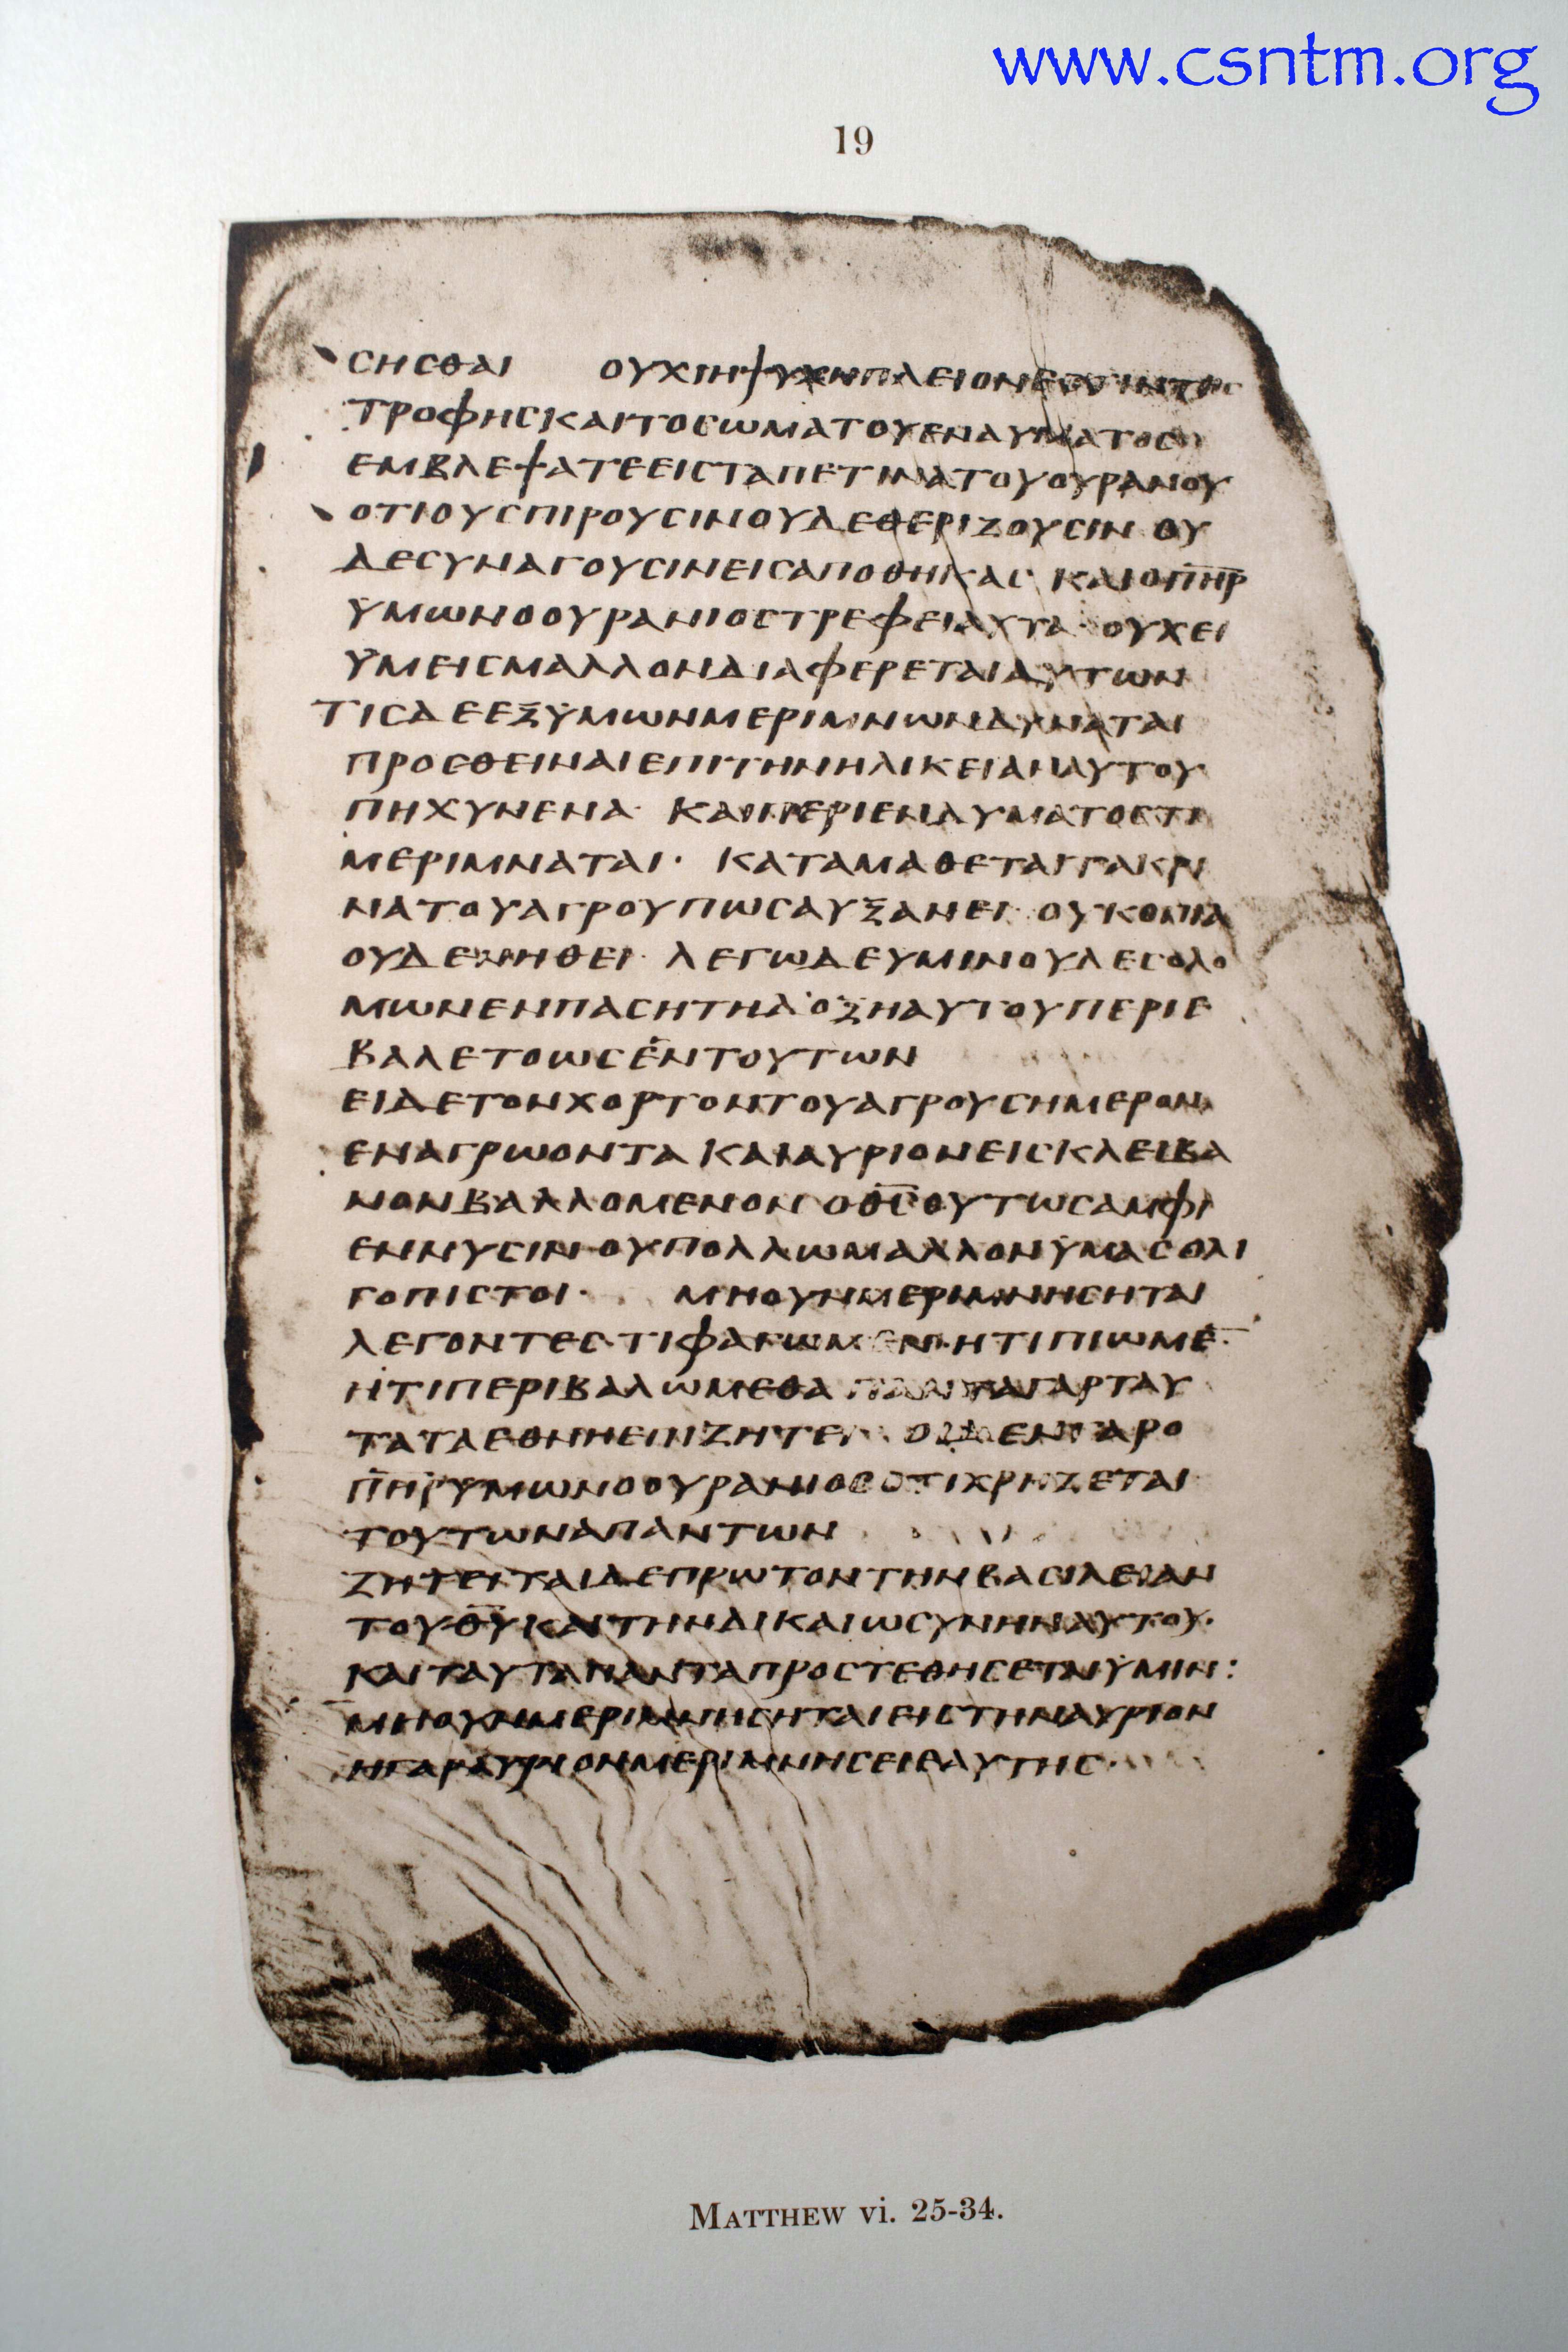 www.csntm.org
19
ϹΗϹΘΑΙ ΟΥΧΙΗΨΥΧΗΠΛΕΙΟΝΕϹΤΙΝΤΗϹ
ΤΡΟΦΗϹΚΑΙΤΟϹΩΜΑΤΟΥΕΝΔΥΜΑΤΟϹ
ΕΜΒΛΕΨΑΤΕΕΙϹΤΑΠΕΤΙΝΑΤΟΥΟΥΡΑΝΟΥ
ΟΤΙΟΥϹΠΙΡΟΥϹΙΝΟΥΔΕΘΕΡΙΖΟΥϹΙΝ ΟΥ
ΔΕϹΥΝΑΓΟΥϹΙΝΕΙϹΑΠΟΘΗΚΑϹ ΚΑΙΟΠ̅Η̅Ρ̅
ΫΜΩΝΟΟΥΡΑΝΙΟϹΤΡΕΦΕΙΑΥΤΑ ΟΥΧΕΙ
ΫΜΕΙϹΜΑΛΛΟΝΔΙΑΦΕΡΕΤΑΙΑΥΤΩΝ
ΤΙϹΔΕΕΞΫΜΩΝΜΕΡΙΜΝΩΝΔΥΝΑΤΑΙ
ΠΡΟϹΘΕΙΝΑΙΕΠΙΤΗΝΗΛΙΚΕΙΑΝΑΥΤΟΥ
ΠΗΧΥΝΕΝΑ· ΚΑΙΠΕΡΙΕΝΔΥΜΑΤΟϹΤΙ
ΜΕΡΙΜΝΑΤΑΙ· ΚΑΤΑΜΑΘΕΤΑΙΤΑΚΡΙ
ΝΑΤΟΥΑΓΡΟΥΠΩϹΑΥΞΑΝΕΙ· ΟΥΚΟΠΙΑ
ΟΥΔΕΝΗΘΕΙ· ΛΕΓΩΔΕΥΜΙΝΟΥΔΕϹΟΛΟ
ΜΩΝΕΝΠΑϹΗΤΗΔΟΞΗΑΥΤΟΥΠΕΡΙΕ
ΒΑΛΕΤΟΩϹΕΝΤΟΥΤΩΝ
ΕΙΔΕΤΟΝΧΟΡΤΟΝΤΟΥΑΓΡΟΥϹΗΜΕΡΟΝ
ΕΝΑΓΡΩΟΝΤΑ ΚΑΙΑΥΡΙΟΝΕΙϹΚΛΕΙΒΑ
ΝΟΝΒΑΛΛΟΜΕΝΟΝ ΟΘ̅Ϲ̅ΟΥΤΩϹΑΜΦΙ
ΕΝΝΥϹΙΝ·ΟΥΠΟΛΛΩΜΑΛΛΟΝΫΜΑϹΟΛΙ
ΓΟΠΙϹΤΟΙ· ΜΗΟΥΝΜΕΡΙΜΝΗϹΗΤΑΙ
ΛΕΓΟΝΤΕϹ·ΤΙΦΑΓΩΜΕΝ·ΗΤΙΠΙΩΜΕ̅
ΗΤΙΠΕΡΙΒΑΛΩΜΕΘΑ ΠΑΝΤΑΓΑΡΤΑΥ
ΤΑΤΑΕΘΝΗΕΠΙΖΗΤΕΙ ΟΙΔΕΝΓΑΡΟ
Π̅Η̅Ρ̅ΥΜΩΝΟΟΥΡΑΝΙΟϹΟΤΙΧΡΗΖΕΤΑΙ
ΤΟΥΤΩΝΑΠΑΝΤΩΝ
ΖΗΤΕΙΤΑΙΔΕΠΡΩΤΟΝΤΗΝΒΑϹΙΛΕΙΑΝ
ΤΟΥΘ̅Υ̅ΚΑΙΤΗΝΔΙΚΑΙΩϹΥΝΗΝΑΥΤΟΥ·
ΚΑΙΤΑΥΤΑΠΑΝΤΑΠΡΟϹΤΕΘΗϹΕΤΑΙΫΜΙΝ:
ΜΗΟΥΝΜΕΡΙΜΝΗϹΗΤΑΙΕΙϹΤΗΝΑΥΡΙΟΝ
ΗΓΑΡΑΥΡΙΟΝΜΕΡΙΜΝΗϹΕΙΕΑΥΤΗϹ·
MATTHEW vi. 25-34.